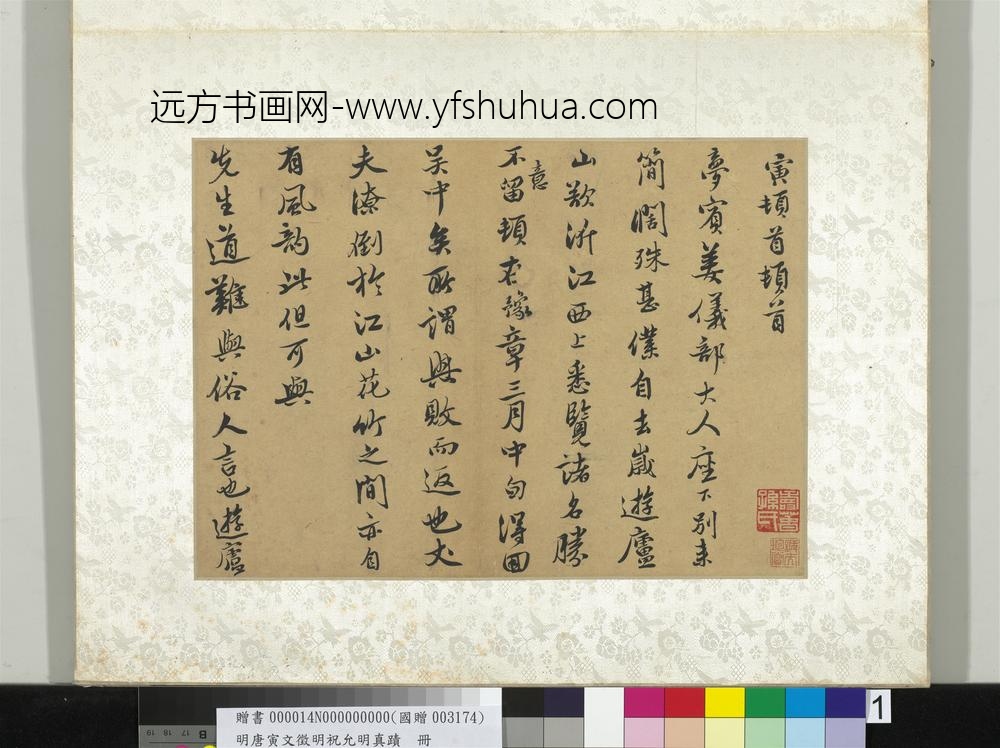 远方书画网-www.yfshuhua.com
寅頓首頓首
夢賓姜儀部大人座下別来
簡闊殊甚僕自去歲遊廬
山歎泝江西上悉覽諸名勝
不意留頓右豫章三月中旬得回
吴中矣所謂興敗而返也丈
夫潦倒於江山花竹之間亦自
有風韵此但可與
先生道難與俗人言也遊廬
贈書 000014N000000000(國贈 003174)
明唐寅文徵明祝允明真蹟 冊
1
B 17 18 19